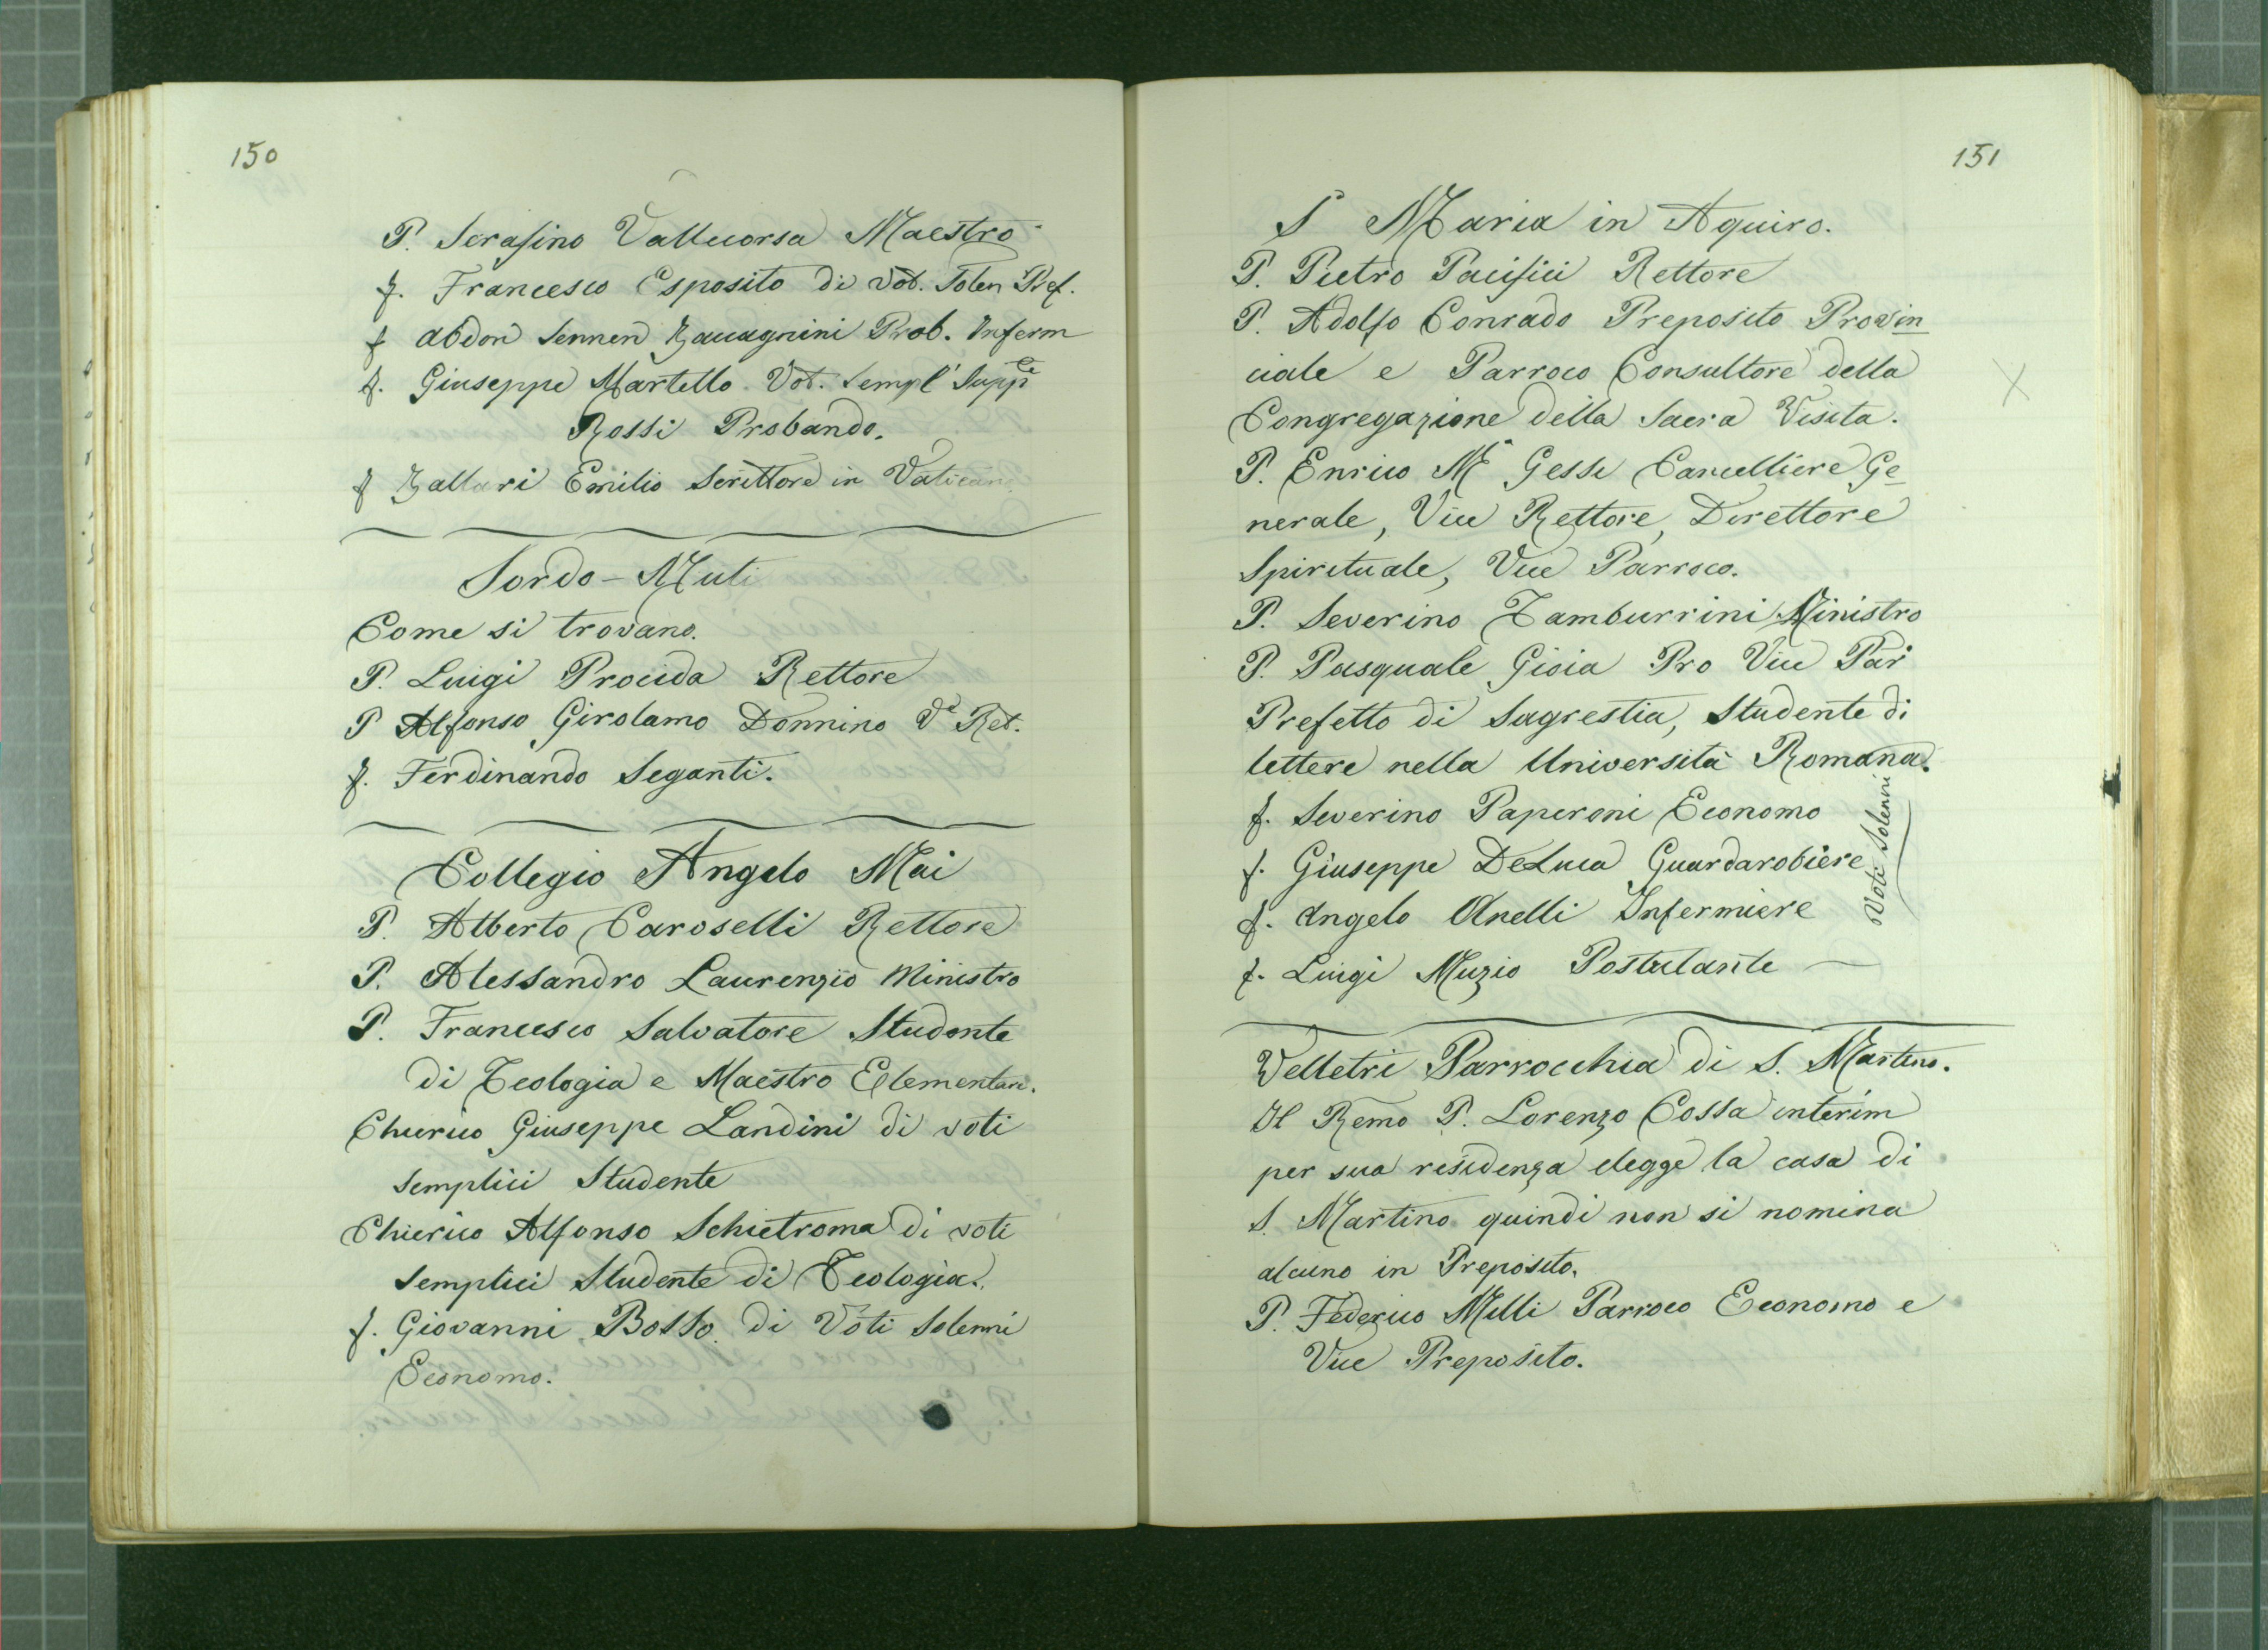 150
P. Serafino Vallecorsa Maestro
f. Francesco Esposito di Vot. Solen Pref.
f Abdon Sennen Zavagnini Prob. Inferm
f. Giuseppe Martello Vot. Sempl' Suppe
Rossi Probando.
f Zallari Emilio Scrittore in Vaticano
Sordo-Muti
Come si trovano.
P. Luigi Procida Rettore
P Alfonso Girolamo Donnino Ve Ret.
f. Ferdinando Seganti.
Collegio Angelo Mai
P. Alberto Caroselli Rettore
P. Alessandro Laurenzio Ministro
P. Francesco Salvatore Studente
di Teologia e Maestro Elementare.
Chierico Giuseppe Landini di voti
semplici Studente
Chierico Alfonso Schietroma di voti
semplici Studente di Teologia.
f. Giovanni Bosso di Voti Solenni
Economo.
151
S Maria in Aquiro.
P. Pietro Pacifici Rettore
P. Adolfo Conrado Preposito Provin
ciale e Parroco Consultore della
Congregazione della Sacra Visita.
P. Enrico Ma Gessi Cancelliere Ge
nerale, Vice Rettore, Direttore
Spirituale, Vice Parroco.
P. Severino Tamburrini Ministro
P. Pasquale Gioia Pro Vice Par
Prefetto di Sagrestia, Studente di
lettere nella Università Romana.
f. Severino Paperoni Economo
f. Giuseppe DeLuca Guardarobiere
f. Angelo Anelli Infermiere
Voti Solenni
f. Luigi Muzio Postulante
Velletri Parrocchia di S. Martino.
Il Remo P. Lorenzo Cossa interim
per sua residenza elegge la casa di
S. Martino quindi non si nomina
alcuno in Preposito.
P. Federico Milli Parroco Economo e
Vice Preposito.